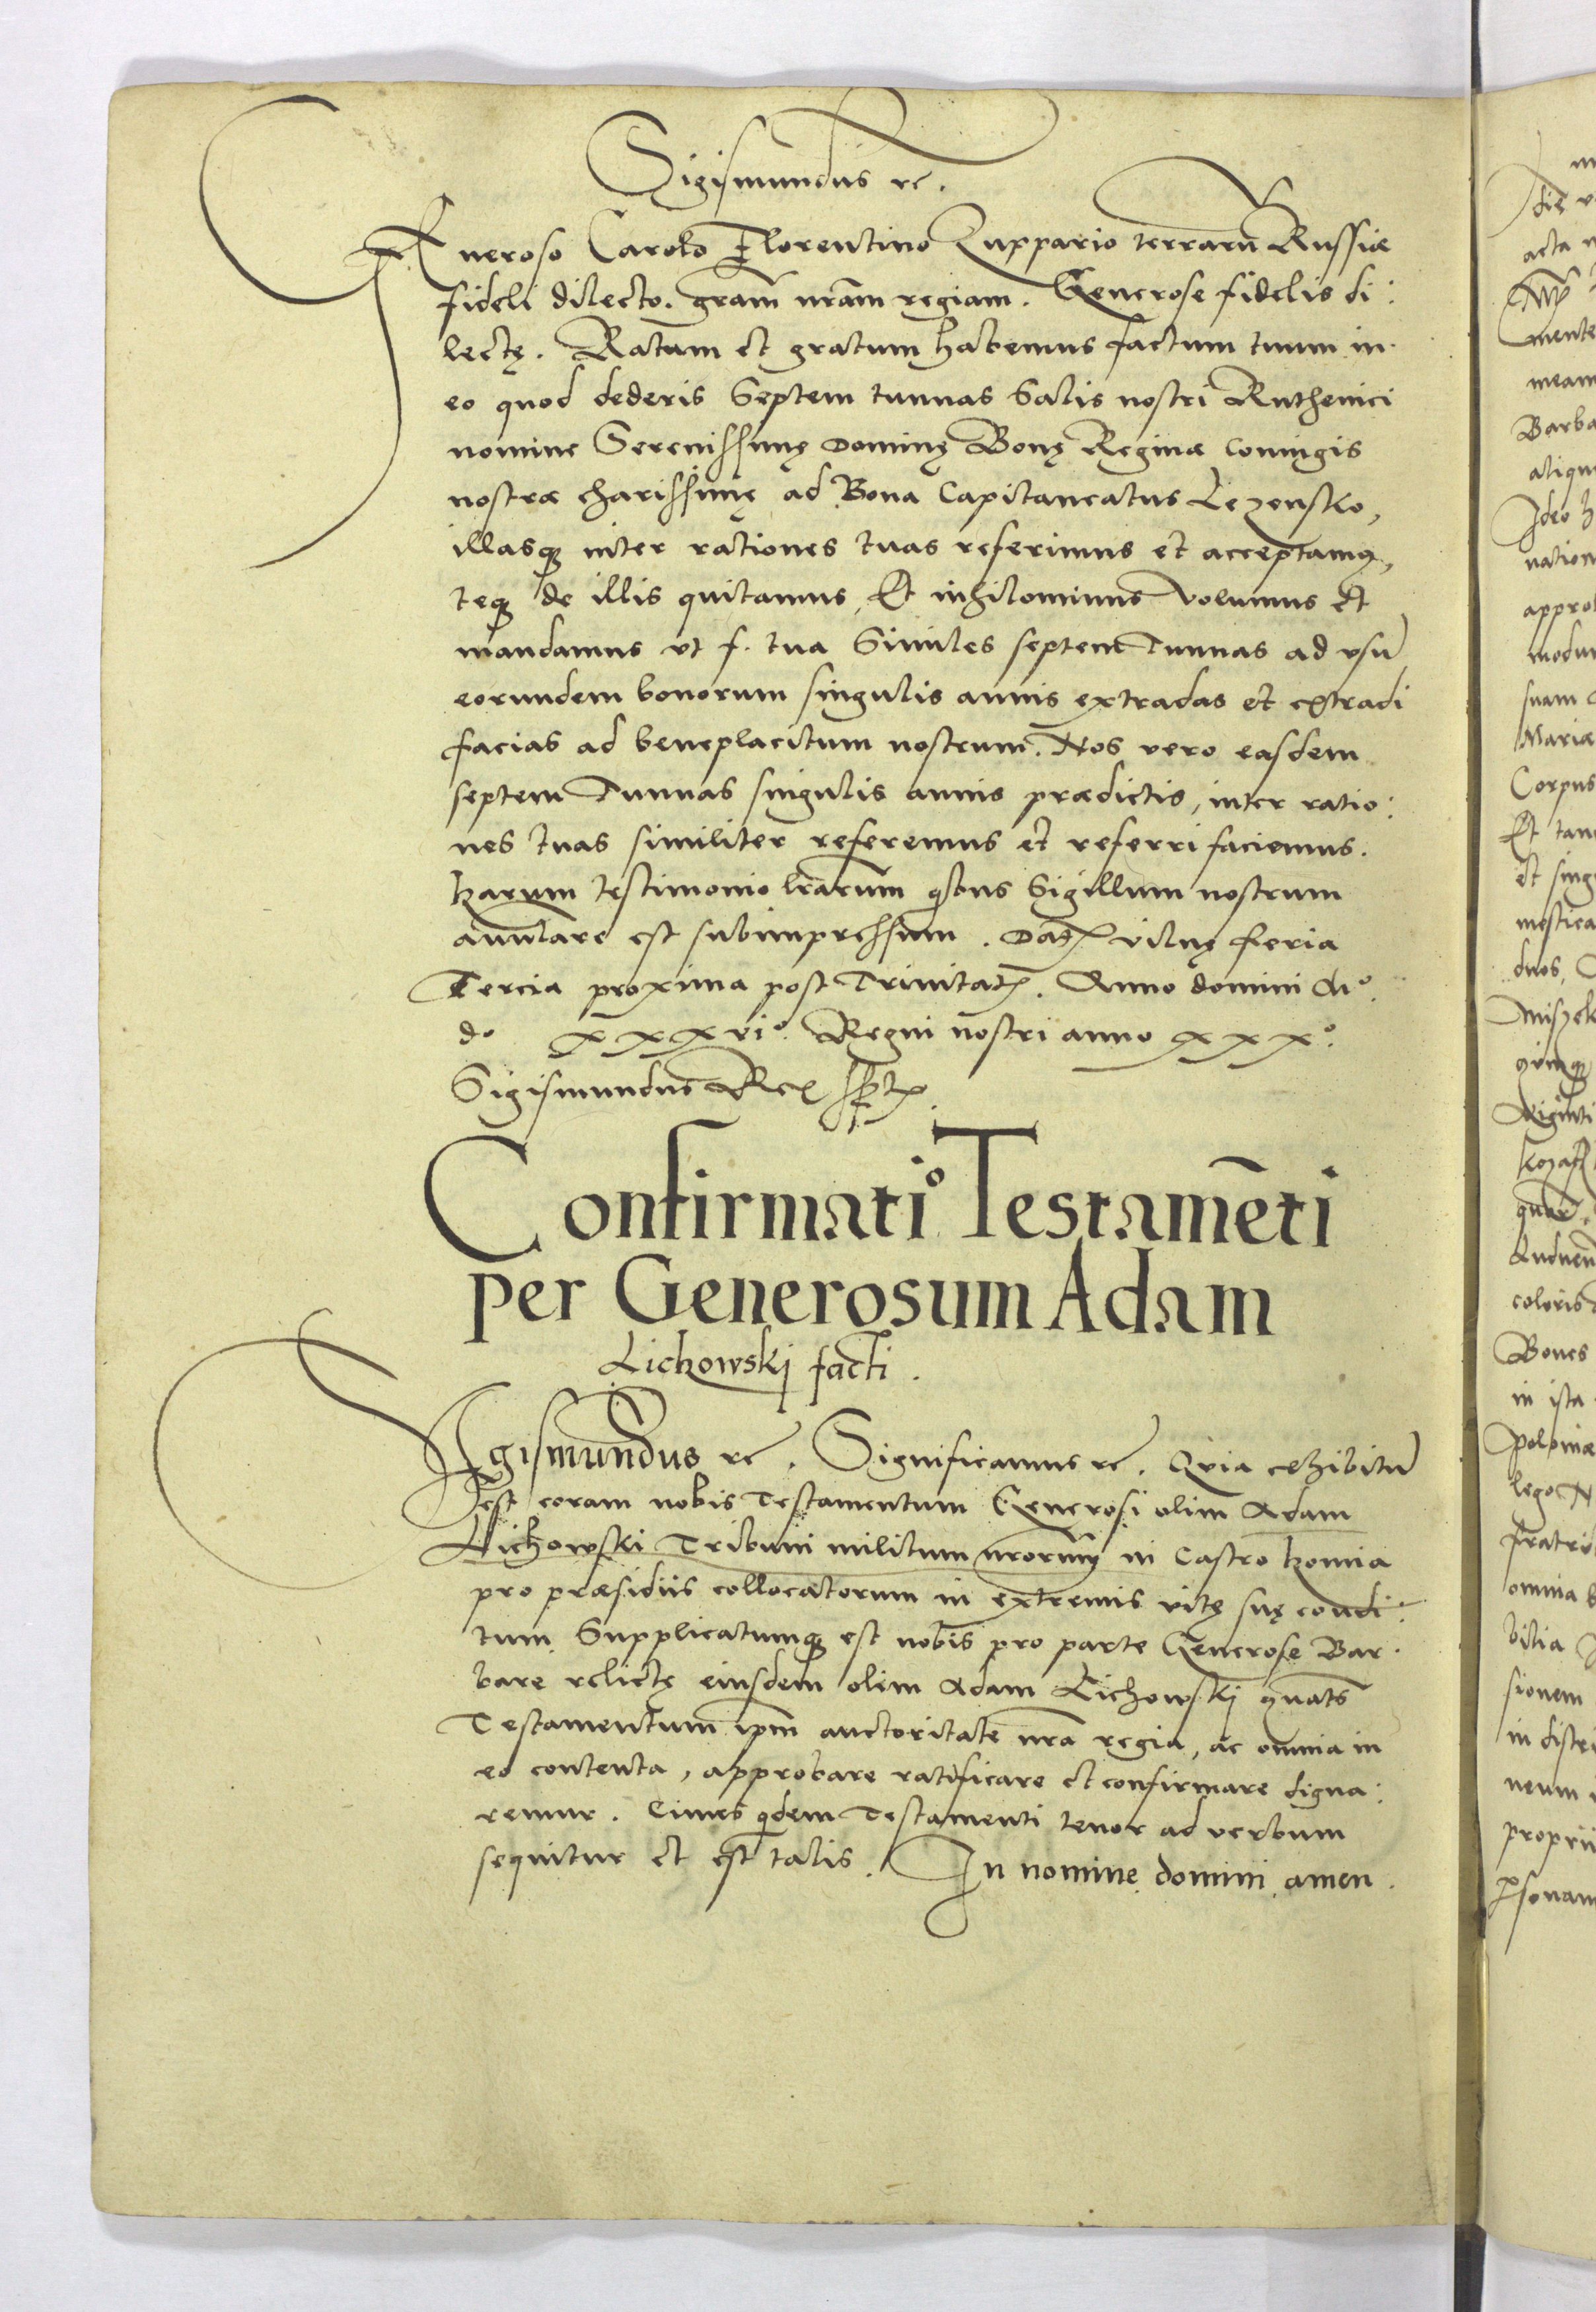 Sigismundus rc.
Generoso Carolo Florentino Zuppario terrarū Russiæ
fideli dilecto. gram̄ nram̄ regiam. Generose fidelis di:
lectę. Ratum et gratum habemus factum tuum in
eo quod dederis Septem tunnas Salis nostri Ruthenici
nomine Serenissimę dominę Bonę Reginæ coniugis
nostræ charissimę ad Bona Capitaneatus Lezensko,
illasq; inter rationes tuas referimus et acceptamus,
teq; de illis quitamus, Et nihilominus volumus et
mandamus vt f. tua Similes septem Tunnas ad vsū
eorundem bonorum singulis annis extradas et extradi
facias ad beneplacitum nostrum. Nos vero easdem
septem Tunnas singulis annis prædictis, inter ratio:
nes tuas similiter referemus et referri faciemus.
harum testimonio lrarum̄ qibus Sigillum nostrum
annulare est subimpressum. Dat. vilnę feria
Tercia proxima post Trinitat. Anno domini M°
d° xxxvi° Regni nostri anno xxx°.
Sigismundus Rex sspt.
Confirmati° Testamēti
per Generosum Adam
Lichowskj facti.
Sigismundus rc. Significamus rc. Qvia exhibitū
est coram nobis Testamentum Generosi olim Adam
Lichowski Tribuni militum nrorum̄ in Castro homia
pro præsidiis collocatorum in extremis vitę suę condi:
tum Supplicatumq; est nobis pro parte Generosę Bar:
barę relictę eiusdem olim Adam Lichowskj qnats̄
Testamentum ipm̄ auctoritate nrā regia, ac omnia in
eo contenta, approbare ratificare et confirmare digna:
remur. Cuius qidem Testamenti tenor ad verbum
sequitur et est talis. In nomine domini amen.